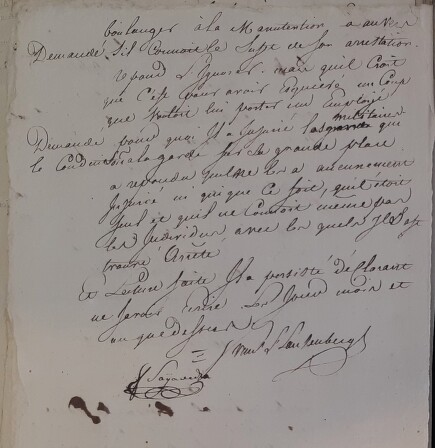 boulanger à la Manutention a anvers
Demandé s'il Connoit le sujet de son arrestation
repond L'Ignorer. mais qu'il Croit
que C'est pour avoir esquivé un Coup
que vouloit lui porter un Employé
Demandé pour quoi Il a Injurié les militaires qui
le Conduisoit a la garde sur la grande place
a repondu qu'il ne les a aucunement
Injurié ni qui que ce soit, qu'il étoit
seul et qu'il ne Connoit même pas
les Individus avec les quels Il s'est
trouvé Arrêté
Et Lecture faite Il a persisté déclarant
ne savoir écrire les Jour mois et
an que dessus